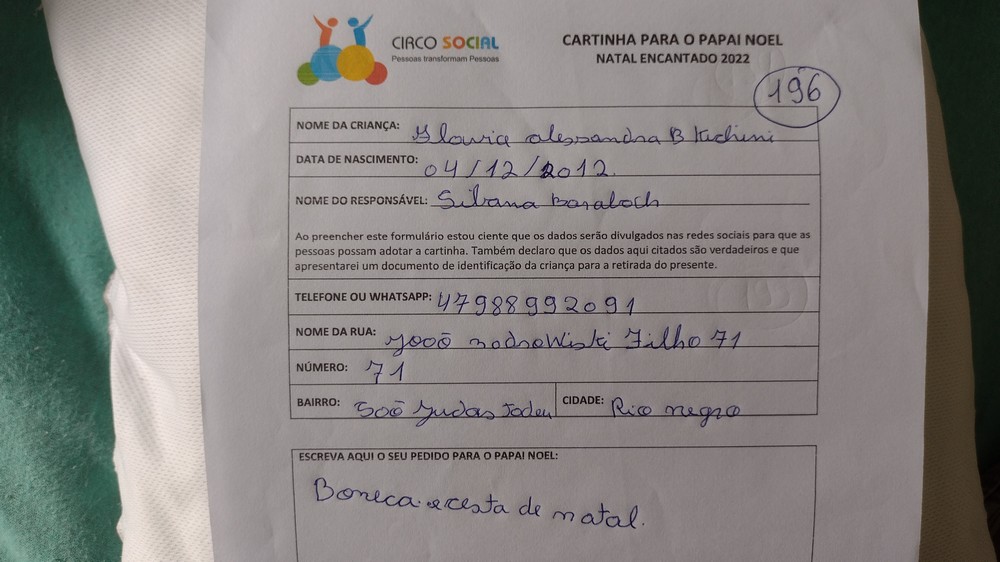 CIRCO SOCIAL
Pessoas transformam Pessoas
CARTINHA PARA O PAPAI NOEL
NATAL ENCANTADO 2022
196
NOME DA CRIANÇA: alessandra B
DATA DE NASCIMENTO: 04/12/2012
NOME DO RESPONSÁVEL: Silvana
Ao preencher este formulário estou ciente que os dados serão divulgados nas redes sociais para que as
pessoas possam adotar a cartinha. Também declaro que os dados aqui citados são verdadeiros e que
apresentarei um documento de identificação da criança para a retirada do presente.
TELEFONE OU WHATSAPP: 47988992091
NOME DA RUA: João Filho 71
NÚMERO: 71
BAIRRO: São Judas Tadeu CIDADE: Rio negro
ESCREVA AQUI O SEU PEDIDO PARA O PAPAI NOEL:
Boneca e cesta de natal.